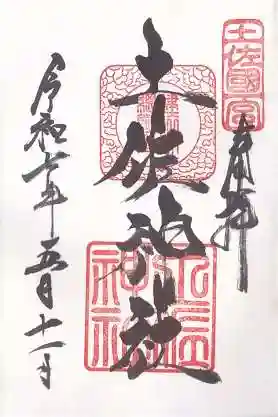 土佐國一宮
奉拝
土佐神社
土佐
神社
令和七年五月十一日